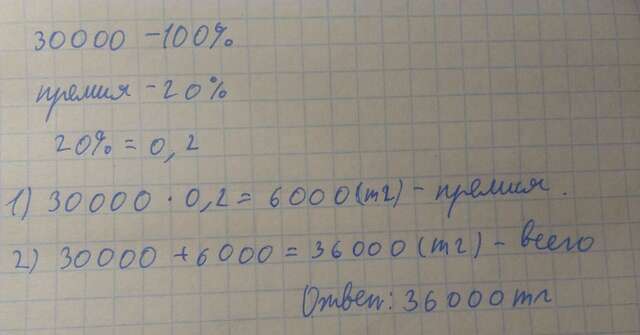 30000 - 100%
премия - 20%
20% = 0,2
1) 30000 · 0,2 = 6000 (тг) - премия.
2) 30000 + 6000 = 36000 (тг) - всего
Ответ: 36000 тг